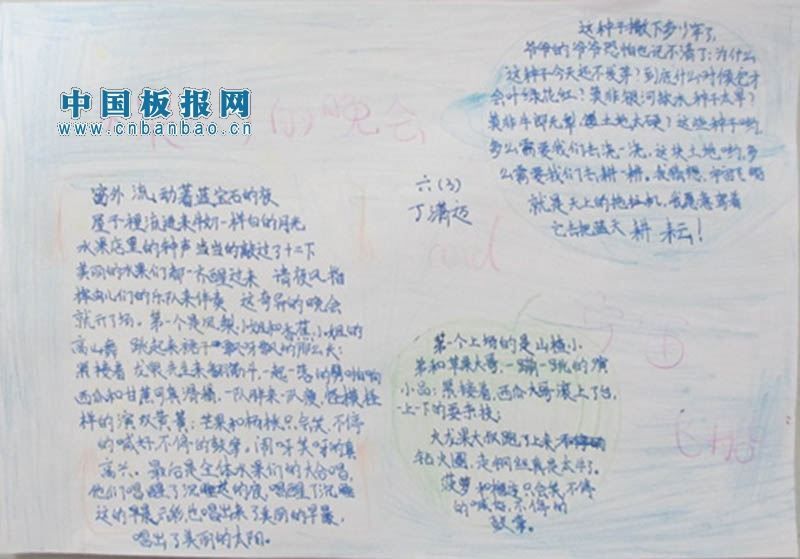 中国板报网
www.cnbanbao.cn
的晚会
窗外 流动著蓝宝石的夜
屋子裡流进来牛奶一样白的月光
水果店里的钟声当当的敲过了十二下
美丽的水果们都一齐醒过来 请夜风指
挥虫儿们的乐队来伴奏 这奇异的晚会
就开了场。第一个是凤梨小姐和香蕉小姐的
高山舞 跳起来裙子飘呀飘的那么长;
紧接着 龙眼先生来翻筋斗,一起一落的劈啪响
西瓜和甘蔗可真滑稽,一队胖来一队瘦,怪模怪
样的演双黄簧;芒果和杨桃只会笑,不停
的喊好,不停的鼓掌。闹呀笑呀的真
高兴。最后是全体水果们的大合唱,
他们唱醒了沉睡着的夜,唱醒了沉睡
这的早晨 也唱出来了美丽的早晨,
唱出了美丽的太阳。
六(3)
丁满迈
这种子撒下多少年了,
爷爷的爷爷恐怕也说不清了;为什么
这种子今天还不发芽?到底什么时候它才
会叶绿花红?莫非银河缺水 种子太旱?
莫非牛郎无犁 土地太硬?这些种子哟,
多么需要我们去浇一浇,这块土地哟,多
么需要我们去耕一耕。我猜想,
就是天上的拖拉机,我愿意驾着
它去把蓝天 耕 耘!
第一个上场的是山楂小
弟和苹果大哥,一蹦一跳的演
小品;紧接着,西瓜大哥滚上了台,
一上一下的耍杂技;
火龙果大叔跑了上来
钻火圈,走钢丝真是太牛了。
菠萝和橙子只会笑,不停
的喊好,不停的
鼓掌。
宇宙